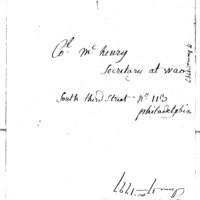 Col. Mc henry
Secretary at war
South third Street No. 113
philadelphia
1797